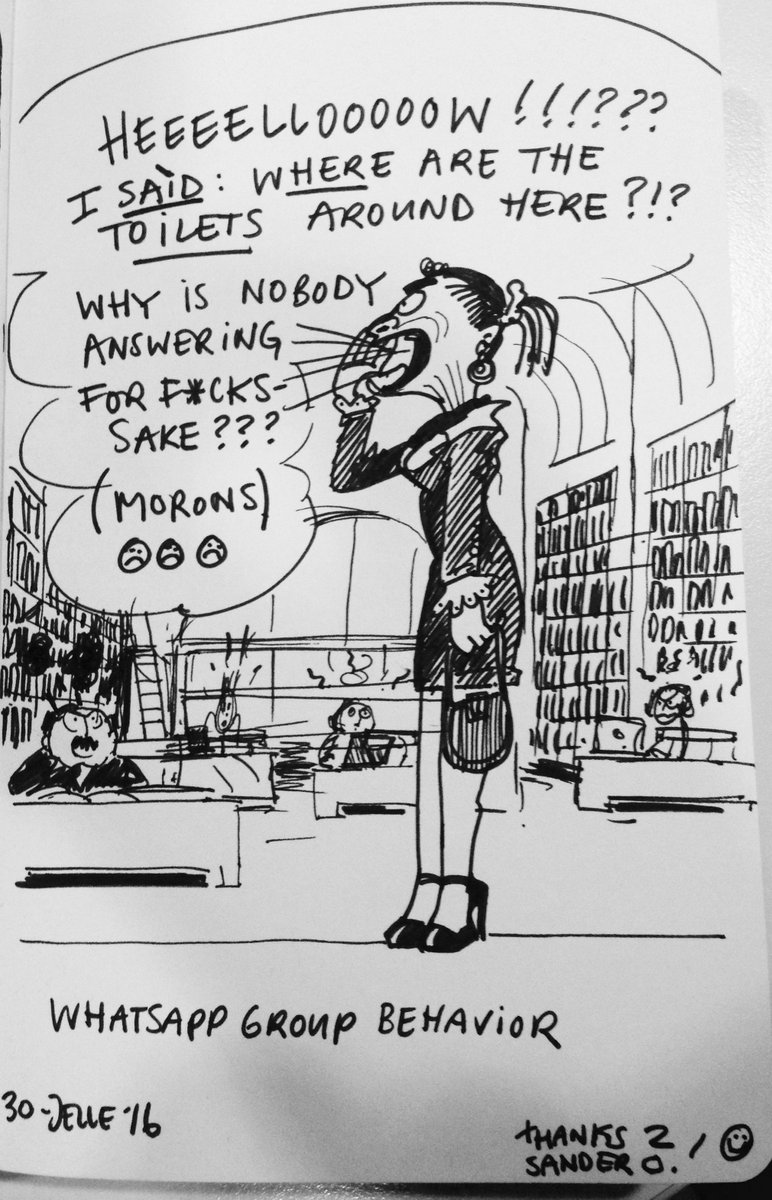 HEEEELLOOOOOW!!!???
I SAID: WHERE ARE THE
TOILETS AROUND HERE?!?
WHY IS NOBODY
ANSWERING
FOR F*CKS-
SAKE???
(MORONS)
WHATSAPP GROUP BEHAVIOR
30-JELLE '16
THANKS 2
SANDER O.